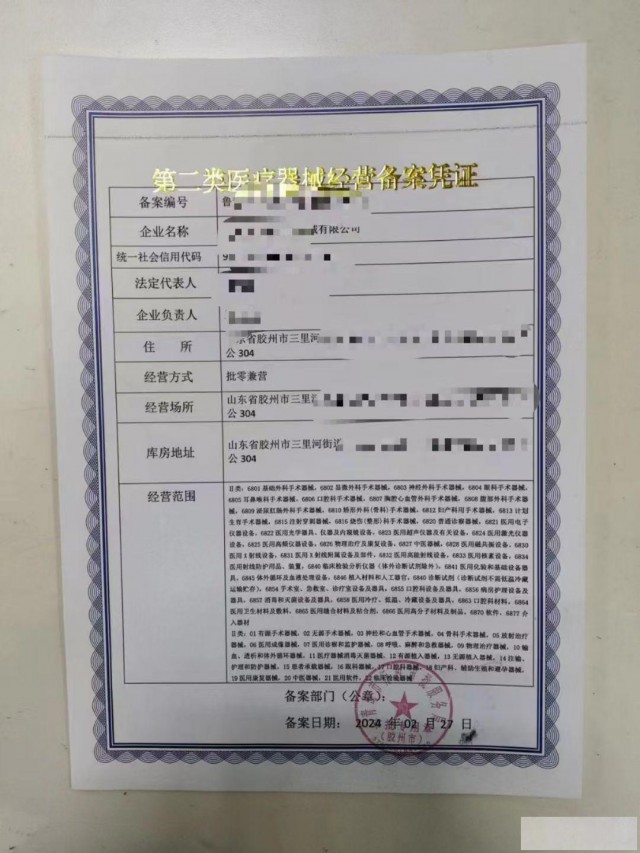 第二类医疗器械经营备案凭证
备案编号 鲁
企业名称 有限公司
统一社会信用代码 9
法定代表人
企业负责人
住 所 省胶州市三里河
公 304
经营方式 批零兼营
经营场所 山东省胶州市三里
公 304
库房地址 山东省胶州市三里河街道
公 304
经营范围
II类: 6801 基础外科手术器械, 6802 显微外科手术器械, 6803 神经外科手术器械, 6804 眼科手术器
械, 6805 耳鼻喉科手术器械, 6806 口腔科手术器械, 6807 胸腔心血管外科手术器械, 6808 腹部外科手术器
械, 6809 泌尿肛肠外科手术器械, 6810 矫形外科(骨科)手术器械, 6812 妇产科用手术器械, 6813 计划
生育手术器械, 6815 注射穿刺器械, 6816 烧伤(整形)科手术器械, 6820 普通诊察器械, 6821 医用电子
仪器设备, 6822 医用光学器具、仪器及内窥镜设备, 6823 医用超声仪器及有关设备, 6824 医用激光仪器
设备, 6825 医用高频仪器设备, 6826 物理治疗及康复设备, 6827 中医器械, 6828 医用磁共振设备, 6830
医用 X 射线设备, 6831 医用 X 射线附属设备及部件, 6832 医用高能射线设备, 6833 医用核素设备, 6834
医用射线防护用品、装置, 6840 临床检验分析仪器(体外诊断试剂除外), 6841 医用化验和基础设备器
具, 6845 体外循环及血液处理设备, 6846 植入材料和人工器官, 6840 诊断试剂(诊断试剂不需低温冷藏
运输贮存), 6854 手术室、急救室、诊疗室设备及器具, 6855 口腔科设备及器具, 6856 病房护理设备及
器具, 6857 消毒和灭菌设备及器具, 6858 医用冷疗、低温、冷藏设备及器具, 6863 口腔科材料, 6864
医用卫生材料及敷料, 6865 医用缝合材料及粘合剂, 6866 医用高分子材料及制品, 6870 软件, 6877 介
入器材
II类: 01 有源手术器械, 02 无源手术器械, 03 神经和心血管手术器械, 04 骨科手术器械, 05 放射治疗
器械, 06 医用成像器械, 07 医用诊察和监护器械, 08 呼吸、麻醉和急救器械, 09 物理治疗器械, 10 输
血、透析和体外循环器械, 11 医疗器械消毒灭菌器械, 12 有源植入器械, 13 无源植入器械, 14 注输、
护理和防护器械, 15 患者承载器械, 16 眼科器械, 17 口腔科器械, 18 妇产科、辅助生殖和避孕器械,
19 医用康复器械, 20 中医器械, 21 医用软件, 22 临床检验器械
备案部门(公章):
备案日期: 2024 年 02 月 27 日
(胶州市)